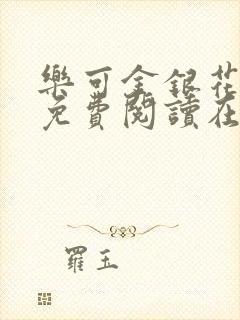 樂可金銀花
免費閱讀在
羅玉